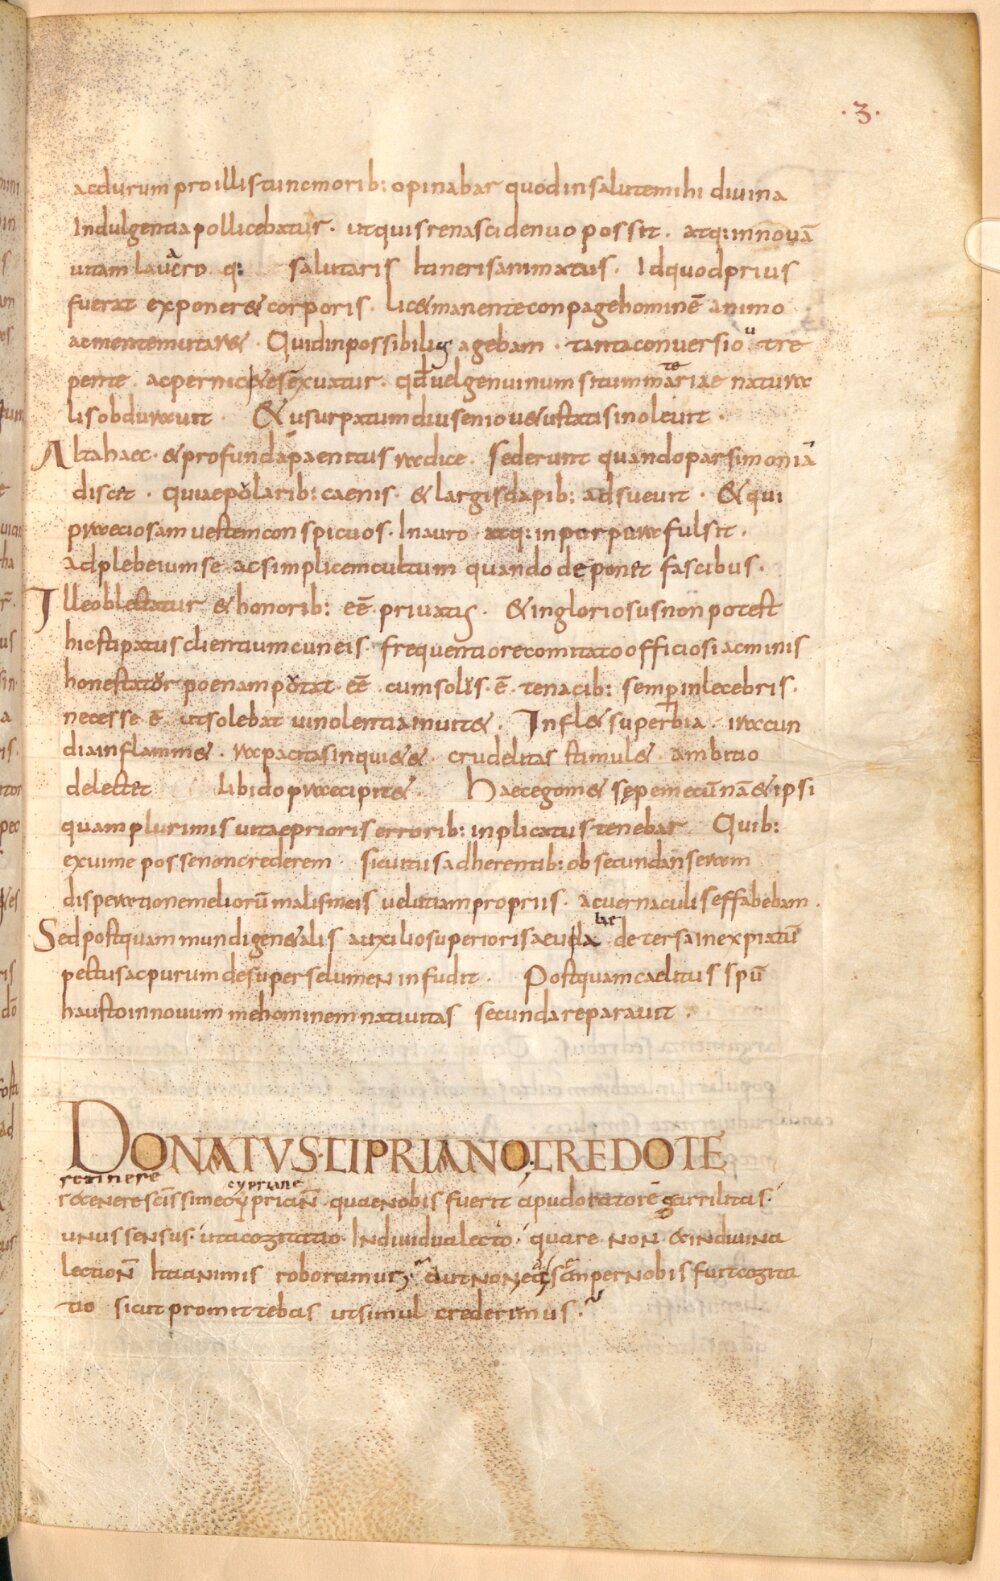 ·3·
ac durum pro illis tunc morib: opinabar quod in salutem mihi diuina
Indulgentia pollicebatur· ut quis renasci denuo possit· atq: in nouā
uitam lauacro q: salutaris Itineris animatus· Id quod prius
fuerat exponeret corporis· licet manente conpage hominē animo
ac mente mutaret· Quid inpossibilis agebam· tanta conuersio ut re
pente ac pernicit& exuatur· qđ uel genuinum situm materiae natura
lis obduruit· & usurpatum diu senio uetustatis inoleuit·
Alta haec· & profunda paenitus radice sederunt quando parsimoniā
discet· qui aepolarib: caenis· & largis dapib: adsueuit· & qui
praeciosam uestem conspicuos· In auro atq: in purpura fulsit·
ad plebeium se ac simplicem cultum quando deponet fascibus·
Ille oblectatur & honorib: eē priuatis· & ingloriosus non potest
hic stipatus clientium cuneis· frequentiore comitato officiosi acminis
honestator poenam potat eē cum solus· ē tenacib: semper inlecebris·
necesse ē ut solebat uinolentia inuitet· Inflet superbia· iracun
dia inflammet· rapacitas inquietet· crudelitas stimulet ambitio
delectet libido praecipitet· Haec egomet sępe mecū nā & ipsi
quam plurimis uitae prioris errorib: inplicatus tenebar Quib:
exui me posse non crederem sic uitiis adherentib: obsecundans eram
disperatione meliorū malis meis uelut iam propriis· ac uernaculis effabebam·
Sed postquam mundi genetalis auxilio superioris aeui labe detersa in expiatū
pectus ac purum desuper se lumen infudit· Postquam caelitus spū
hausto in nouum me hominem natiuitas secunda reparauit·
DONATVS·CIPRIANO; CREDO TE
retinere cypriane
retenere scissime cypriani quae nobis fuerit apud oratorē garrilitas·
unus sensus· ut a cogitatio Indiuidua lecto· quare non & in diuina
lectione Ita animis roboramur; aut non et semper nobis fuit cogita
tio sicut promittebas ut simul crederimus·